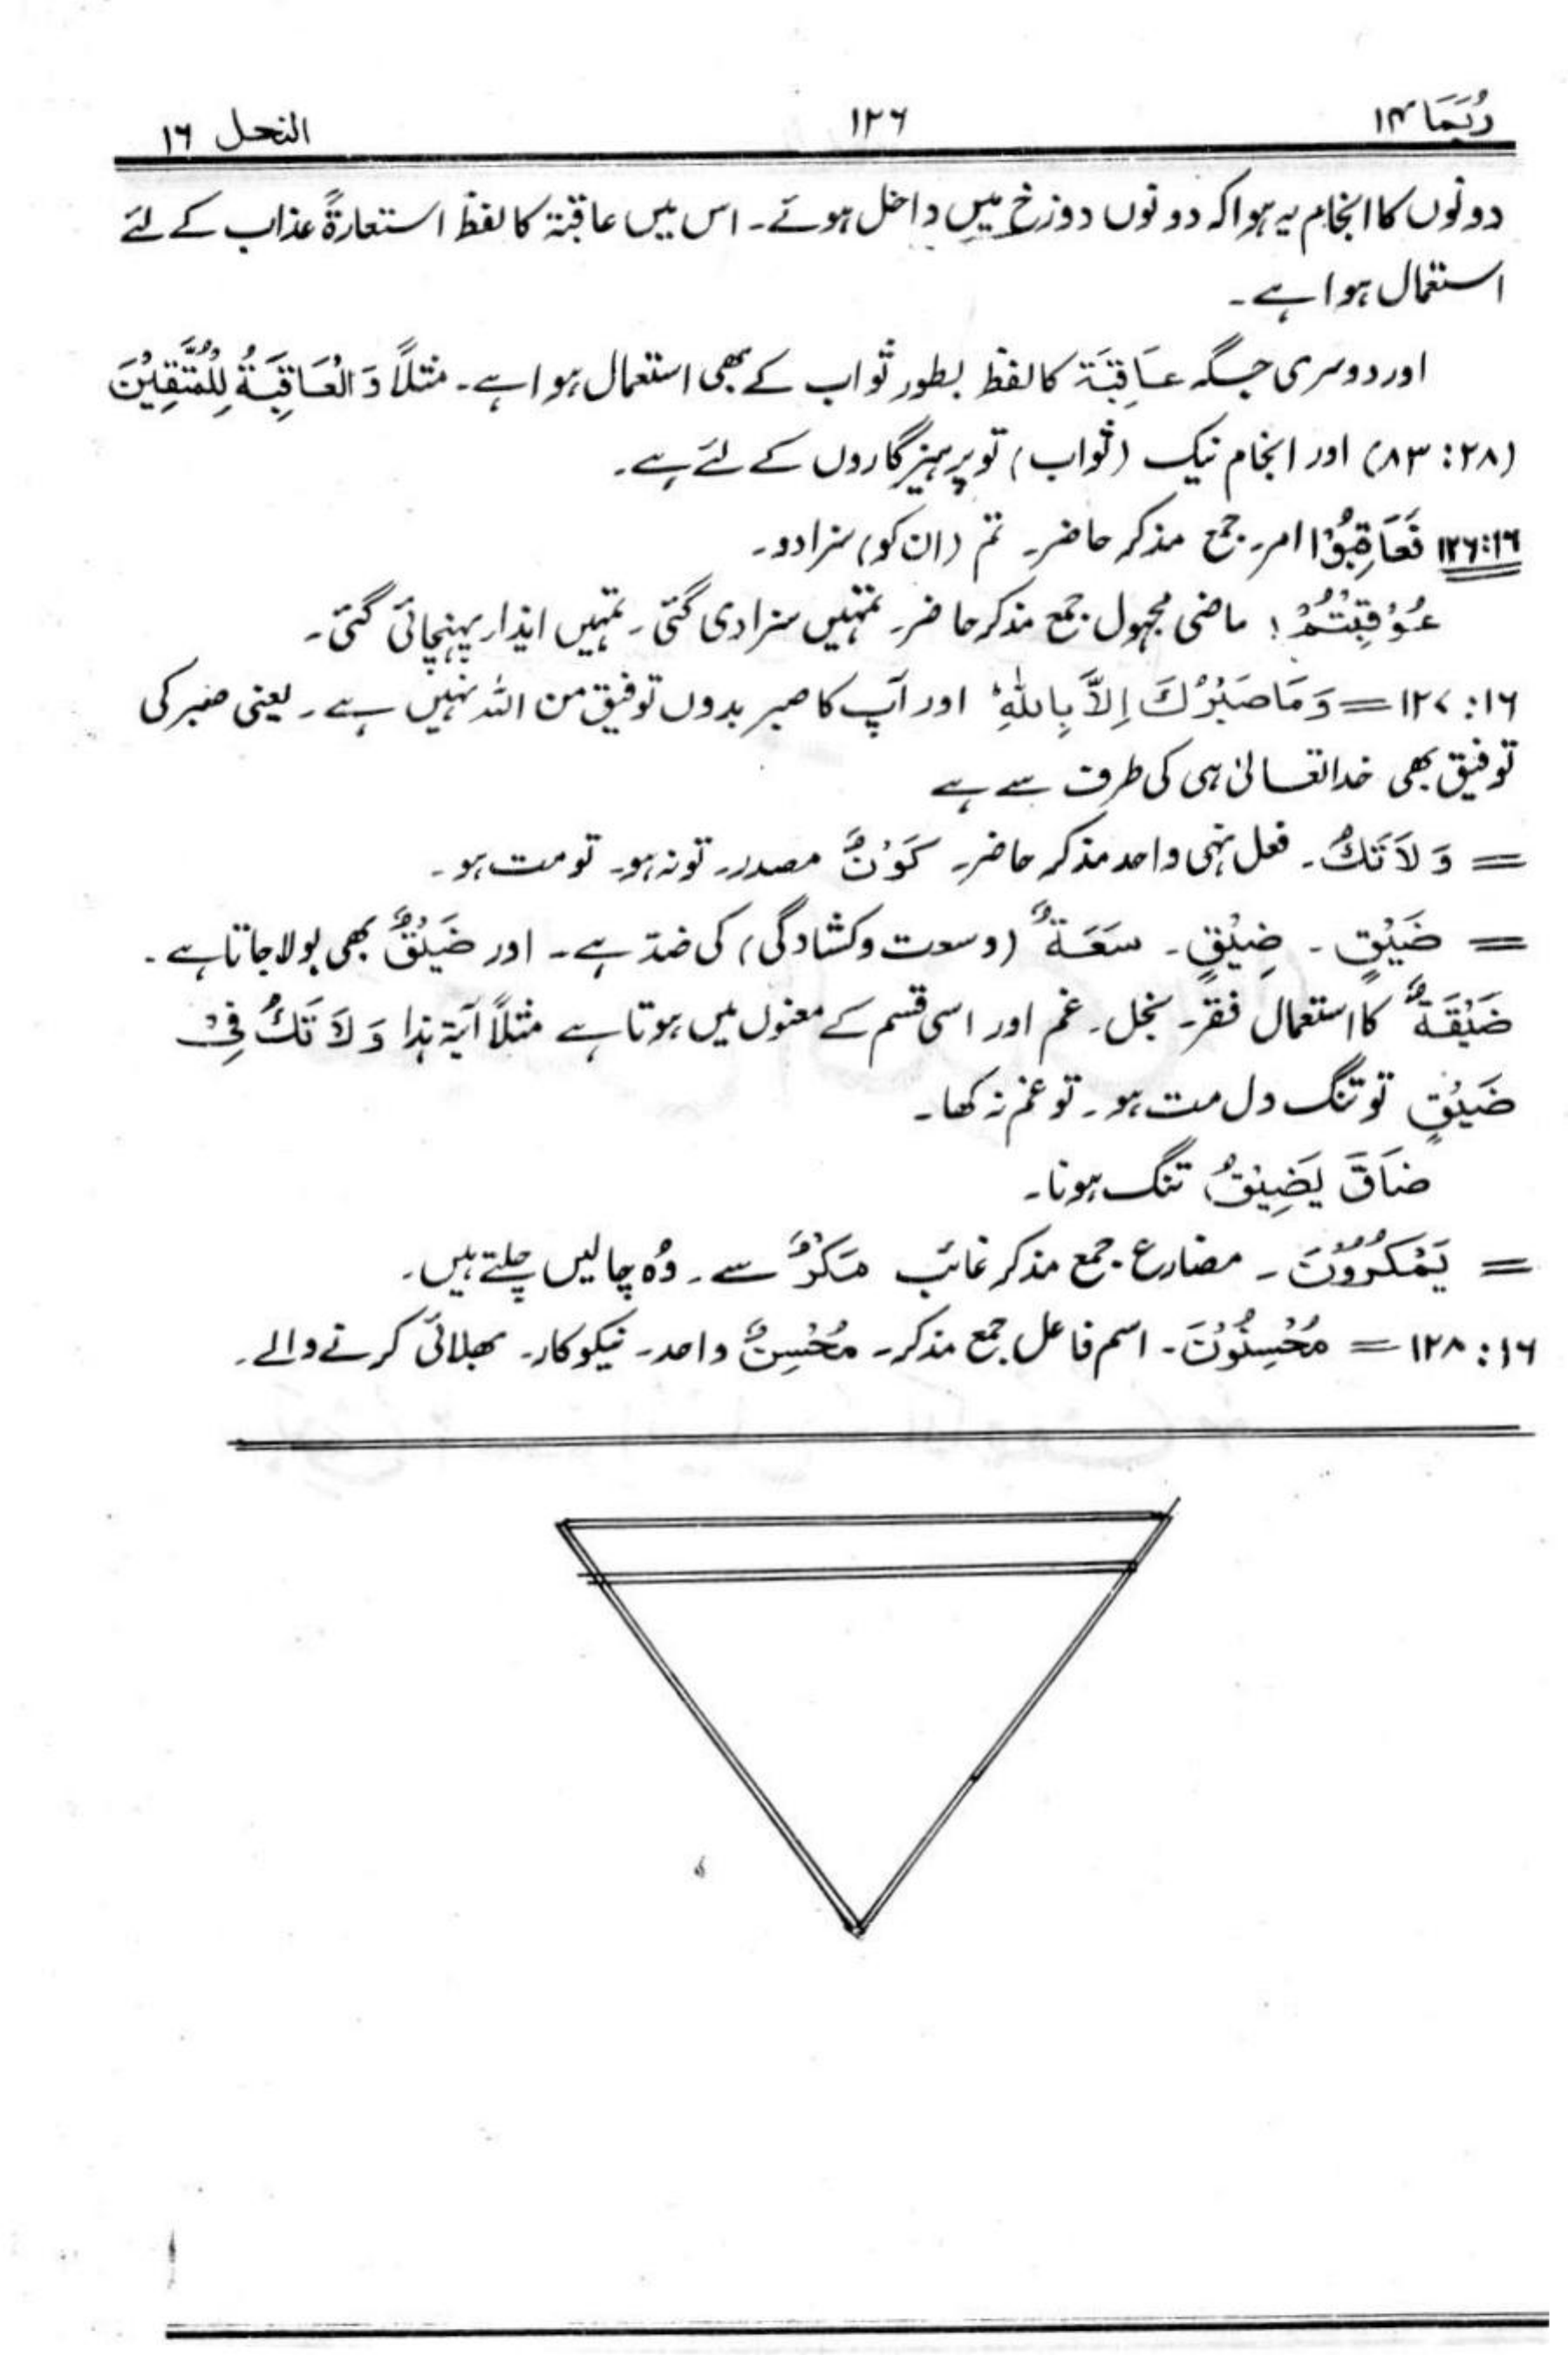 رُبَمَا ۱۴ ۱۲۶ النحل ۱۶
دونوں کا انجام یہ ہوا کہ دونوں دوزخ میں داخل ہوئے۔ اس میں عاقبۃ کا لفظ استعارۃً عذاب کے لئے
استعمال ہوا ہے۔
اور دوسری جگہ عَاقِبَۃ کا لفظ بطور ثواب کے بھی استعمال ہوا ہے۔ مثلاً وَ الْعَاقِبَةُ لِلْمُتَّقِيْنَ
(۲۸: ۸۳) اور انجام نیک (ثواب) تو پرہیزگاروں کے لئے ہے۔
۱۶:۱۲۶ فَعَاقِبُوْا امر۔ جمع مذکر حاضر۔ تم (ان کو) سزا دو۔
عُوْقِبْتُمْ؛ ماضی مجہول جمع مذکر حاضر۔ تمہیں سزا دی گئی۔ تمہیں ایذار پہنچائی گئی۔
۱۶: ۱۲۷ = وَمَا صَبْرُكَ اِلَّا بِاللّٰهِ اور آپ کا صبر بدوں توفیق من اللہ نہیں ہے۔ یعنی صبر کی
توفیق بھی خدا تعالیٰ ہی کی طرف سے ہے
= وَ لَا تَكُ۔ فعل نہی واحد مذکر حاضر۔ کَوْنٌ مصدر۔ تو نہ ہو۔ تو مت ہو۔
= ضَيْقٍ۔ ضِيْقٍ۔ سَعَةٌ (وسعت و کشادگی) کی ضد ہے۔ اور ضَيْقٌ بھی بولا جاتا ہے۔
ضَيْقَةٌ کا استعمال فقر۔ بخل۔ غم اور اسی قسم کے معنوں میں ہوتا ہے مثلاً آیۃ ہذا وَ لَا تَكُ فِیْ
ضَيْقٍ تو تنگ دل مت ہو۔ تو غم نہ کھا۔
ضَاقَ يَضِيْقُ تنگ ہونا۔
= يَمْكُرُوْنَ۔ مضارع جمع مذکر غائب مَكْرٌ سے۔ وُہ چالیں چلتے ہیں۔
۱۶: ۱۲۸ = مُحْسِنُوْنَ۔ اسم فاعل جمع مذکر۔ مُحْسِنٌ واحد۔ نیکوکار۔ بھلائی کرنے والے۔